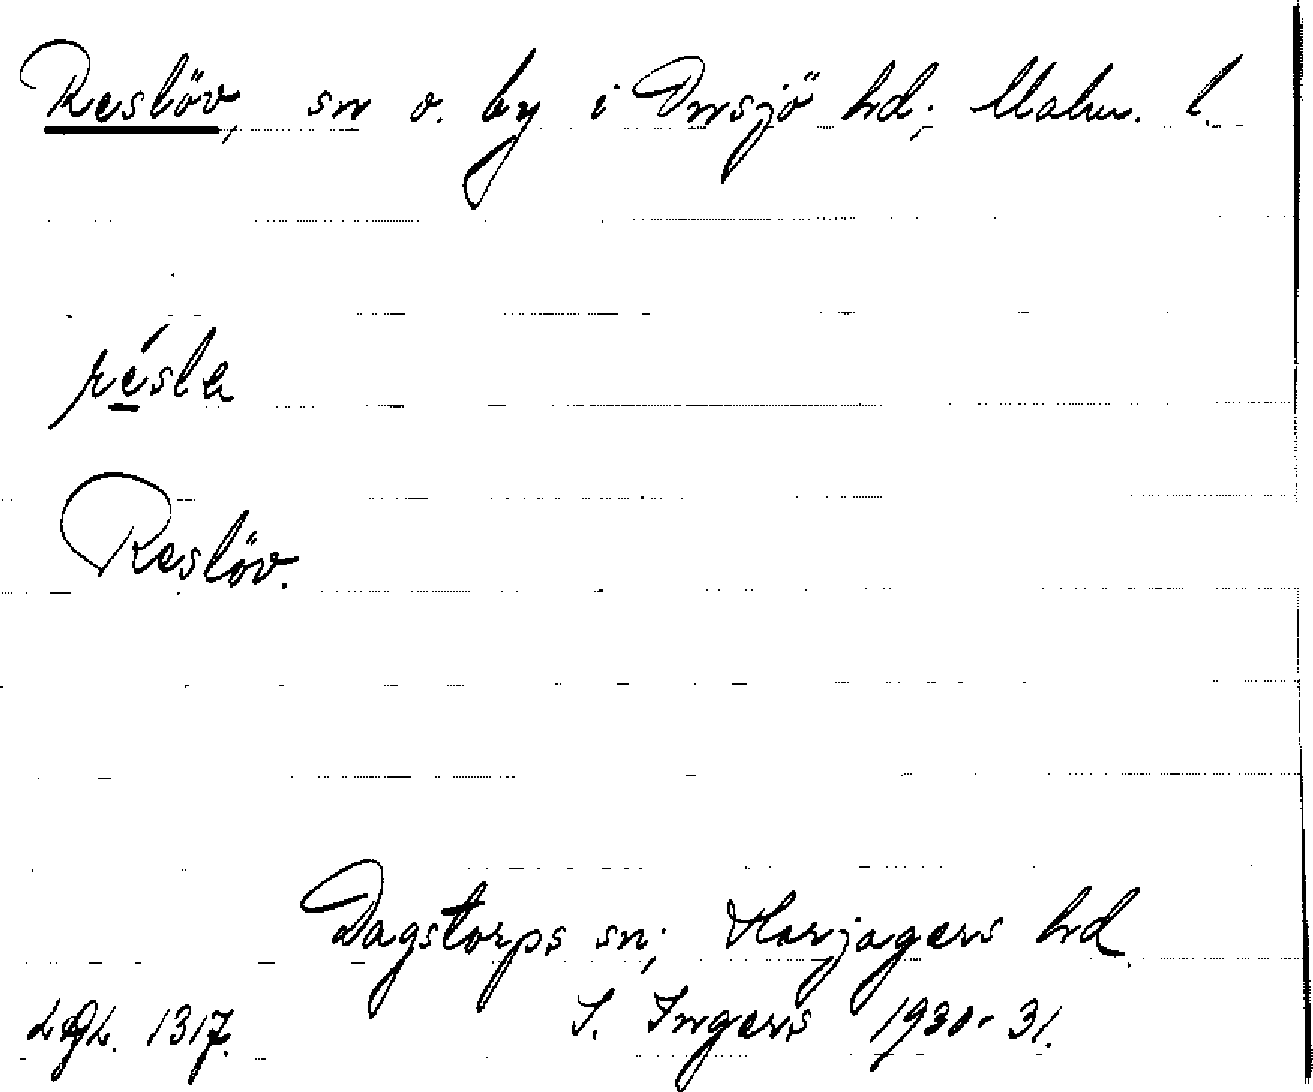 Reslöv, sn o. by i Onsjö hd; Malm. l.
résla
Reslöv.
Dagstorps sn; Harjagers hd.
1317. I. Ingers 1930-31.